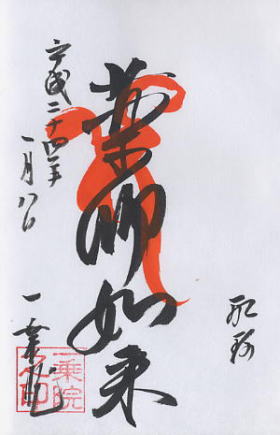 薬師如来
平成二十四年
一月八日
一乗院
一乗院
之印